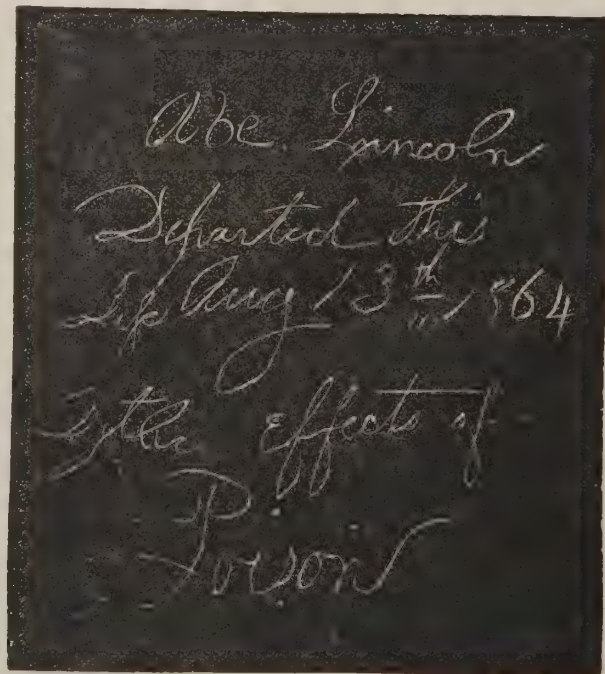 Abe. Lincoln
Departed this
Life Aug 13th 1864
By the effects of
Poison